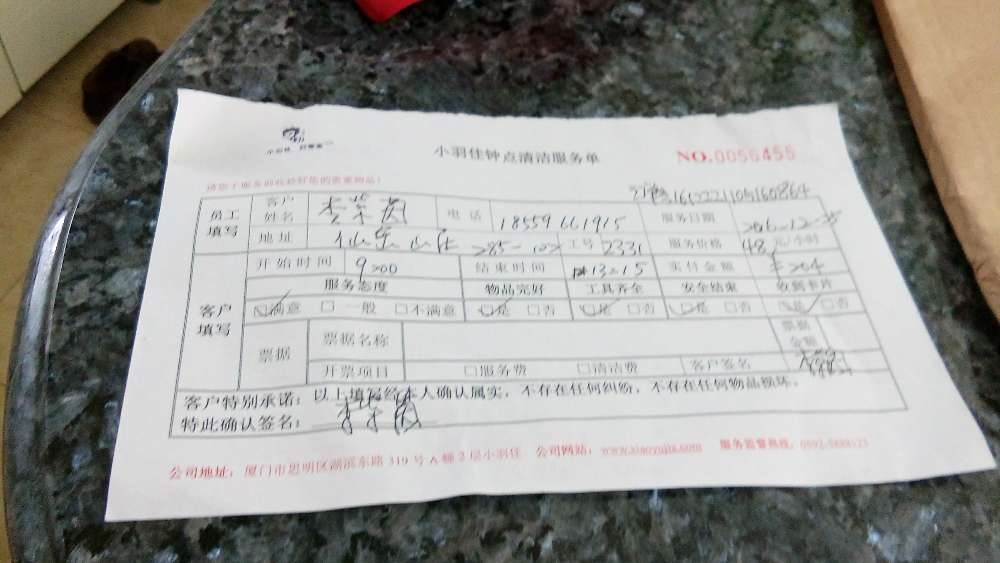 小羽佳钟点清洁服务单 NO.0056455
请您于服务前收拾好您的贵重物品!
员工填写 客户姓名 电话 18559661915 服务日期
地址 285-102 工号 2331 服务价格 48元/小时
客户填写 开始时间 9:00 结束时间 13:15 实付金额 ¥204
服务态度 物品完好 工具齐全 安全结束 收到卡片
☑满意 □一般 □不满意 ☑是 □否 ☑是 □否 ☑是 □否 ☑是 □否
票据 票据名称 票据金额
开票项目 □服务费 □清洁费 客户签名
客户特别承诺:以上填写经本人确认属实,不存在任何纠纷,不存在任何物品损坏。
特此确认签名:
公司地址:厦门市思明区湖滨东路319号A幢2层小羽佳 公司网站:www.xiaoyujia.com 服务监督热线: